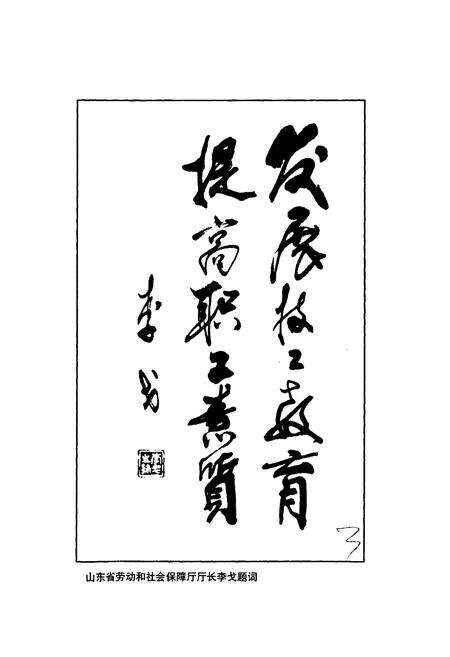 发展技工教育
提高职工素质
李戈
3
山东省劳动和社会保障厅厅长李戈题词